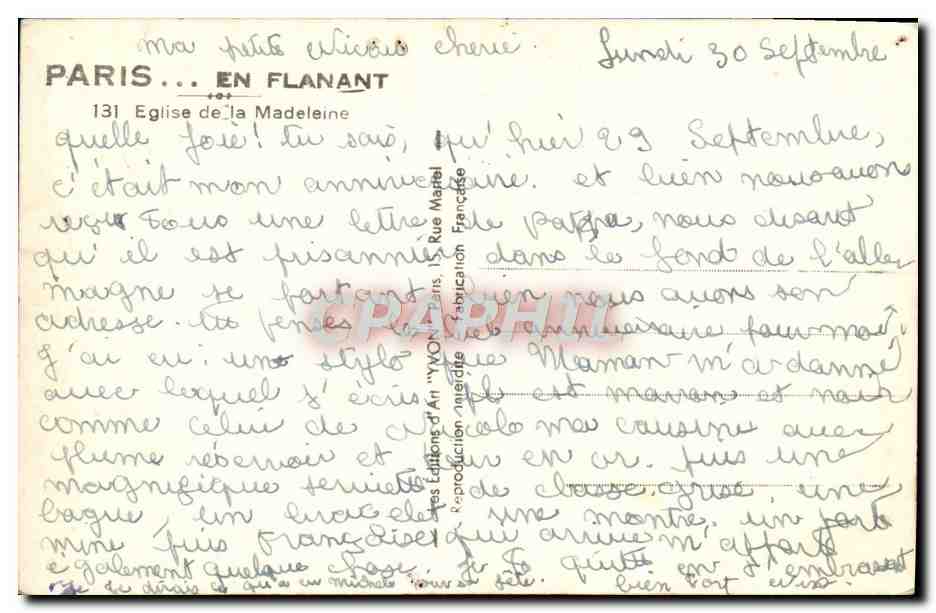 ma petite chérie. Lundi 30 Septembre
PARIS... EN FLANANT
131 Eglise de la Madeleine
quelle joie! tu sais, qu'hier 29 Septembre,
c'était mon annivairaire. et bien nous avons
reçu tous une lettre de pappa, nous disant
qu'il est prisannier dans le fond de l'alle
magne se portant bien nous avons son
adresse. tu penses anniversaire pour moi,
J'ai eu: un stylo que Maman m'a donné
avec lequel j'écris. Il est marron et noir
comme celui de ma cousine avec
plume réservoir et en or. puis une
magnifique serviette de classe grise, une
bague, un bracelet, une montre, un porte
mine puis Françoise qui arrive m'apporte
également quelque chose. Je te quitte en t'embrassant
bien fort
Les Editions d'Art "YVON", Paris, 15, Rue Martel
Reproduction interdite Fabrication Française
CPAPHIL